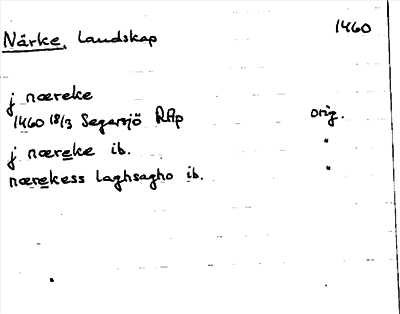 Närke, Landskap 1460
j næreke
1460 18/3 Segersjö RAp orig.
j næreke ib. "
nærekess laghsagho ib. "